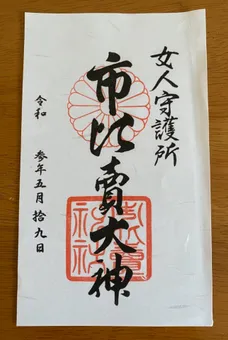 女人守護所
市比賣大神
市比賣神社
令和
参年五月拾九日